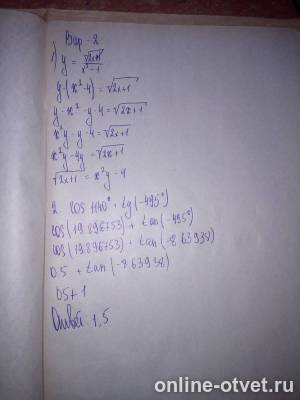 Вар - 2
1) y = √2x+1 / x² - 1
y · (x² · 4) = √2x+1
y · x² · y · 4 = √2x+1
x²y - y · 4 = √2x+1
x²y - 4y = √2x+1
√2x+1 = x²y - 4
2 cos 1140° + tg (-495°)
cos (19.896753) + tan (-495°)
cos (19.896753) + tan (-8.63938)
0.5 + tan (-8.63938)
0.5 + 1
Ответ: 1,5
online-otvet.ru